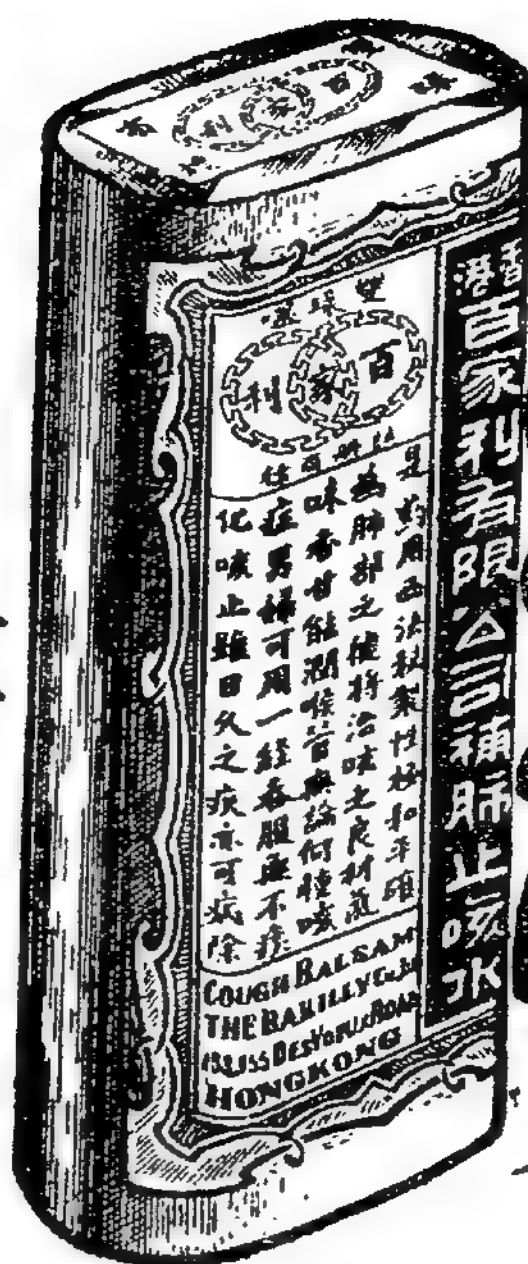 香港百家利有限公司補肺止咳水
百家利
是药用西法秘製性極和平確
為肺部之健將治咳之良材氣
味香甘能潤喉管無論何種咳
症男婦可用一經吞服無不痰
化咳止雖日久之疾亦可病除
COUGH BALSAM
THE BAKILLY Co. Ld
DES VOEUX ROAD
HONGKONG
百家利